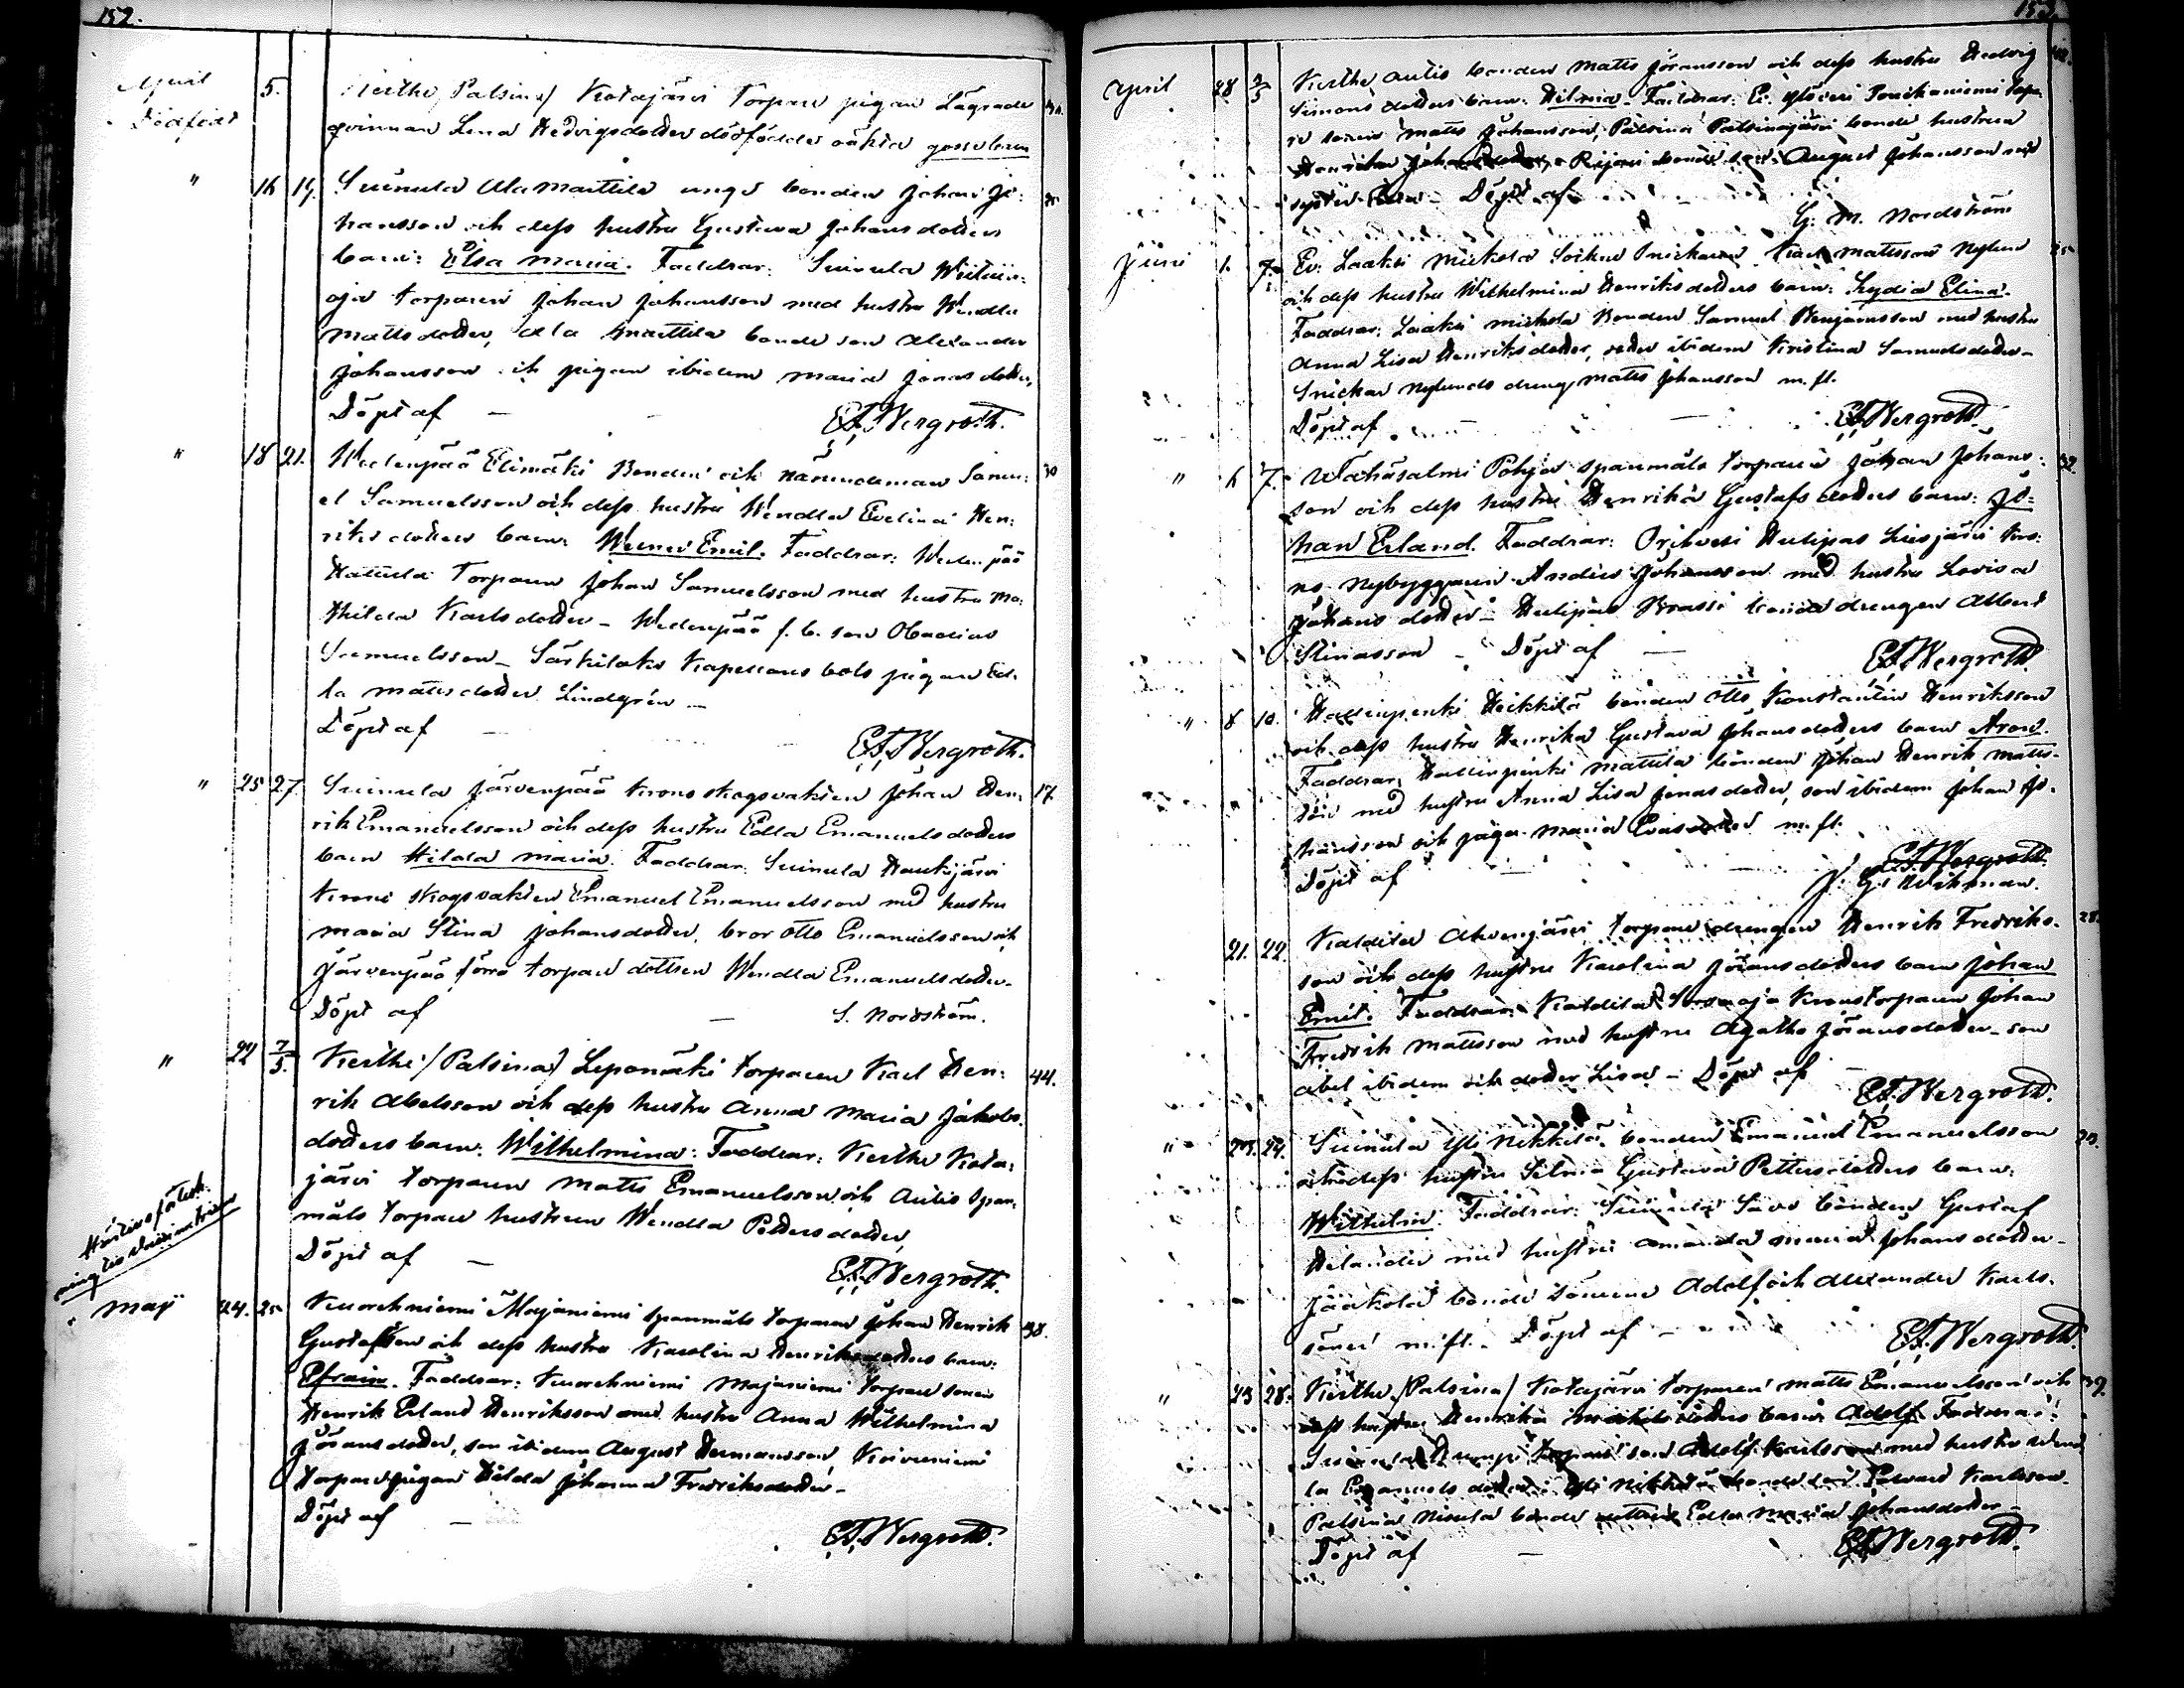 152.
April 5. Kerthe /Palsina/ Kotajärvi Torpare pigan Lägrade
Dödfödt qvinnan Lena Hedvigsdotter dödfödda oäkta gossebarn
" 16 19. Suinula Ala Marttila unge bonden Johan Jo-
hansson och dess hustru Gustava Johansdotters
barn: Elsa Maria. Faddrar: Suinula
oja torparen Johan Johansson med hustru Wendla
Mattsdotter, Ala Marttila bonde son Alexander
Johansson och pigan ibidem Maria Jonasdotter,
Döpt af — E.F. Bergroth.
" 18 21. Wedenpää Elimäki Bonden och nämndeman Samu- 30
el Samuelsson och dess hustru Wendla Evelina Hen-
riksdotters barn: Werner Emil. Faddrar: Wedenpää
Hattula Torparen Johan Samuelsson med hustru Ma-
thilda Karlsdotter – Wedenpää f. b. son Obadias
Samuelsson – Särkilaks Kapellans bols pigan Ed-
la Mattsdotter Lindgrén –
Döpt af — E.F. Bergroth.
" 25 27. Suinula Järvenpää Krono skogsvakten Johan Hen- 17.
rik Emanuelsson och dess hustru Edla Emanuelsdotters
barn Hilda Maria. Faddrar: Suinula Haukijärvi
Krono skogsvakten Emanuel Emanuelsson med hustru
Maria Stina Johansdotter, bror Otto Emanuelsson och
Järvenpää förra torpare dottren Wendla Emanuelsdotter.
Döpt af — S. Nordström.
" 22 7/5. Kerthe /Palsina/ Lepomäki torparen Karl Hen- 44.
rik Abelsson och dess hustru Anna Maria Jakobs-
dotters barn: Wilhelmina: Faddrar: Kerthe Kota-
järvi torparen Matts Emanuelsson och Autio span-
måls torpare hustrun Wendla Pettersdotter,
Döpt af — E.F. Bergroth.
Maj 24. 25 Kuorehniemi Majaniemi spanmåls torparen Johan Henrik 38.
Gustafsson och dess hustru Karolina Henriksdotters barn:
Efraim. Faddrar: Kuorehniemi Majaniemi torpare sonen
Henrik Erland Henriksson med hustru Anna Wilhelmina
Jöransdotter, son ibidem August Hermansson, Koivuniemi
torparepigan Hilda Johanna Fredriksdotter –
Döpt af — E.F. Bergroth.
153.
April 28 3/5 Kerthe Autio bonden Matts Jöransson och dess hustru Hedvig
Simonsdotters barn: Hilma. Faddrar: torpa-
re sonen Matts Johansson, Palsina Palsinajärvi bonde hustrun
Henrika Johansdotter, bonde son August Johansson med
syster – Döpt af
G. M. Nordström
Juni 1. 7. Ev. Laaksi Mickola Snickaren Karl Mattsson Nylund
och dess hustru Wilhelmina Henriksdotters barn: Lydia Elina.
Faddrar: Laaksi Mickola Bonden Samuel Benjamsson med hustru
Anna Lisa Henriksdotter, ibidem Kristina Samuelsdotter –
Snickar Nylunds dräng Matts Johansson m. fl.
Döpt af — E.F. Bergroth.
" 6 7. Wähäsalmi Pohja spanmåls torparen Johan Johans- 32.
son och dess hustru Henrika Gustafsdotters barn: Jo-
han Erland. Faddrar: Orihvesi Hirsjärvi kro-
no nybyggaren Anders Johansson med hustru Lovisa
Johansdotter – bonde drängen Albert
Stinasson – Döpt af — E.F. Bergroth
" 8 10. Hallinpenki Heikkilä bonden Otto Konstantin Henriksson
och dess hustru Henrika Gustava Johansdotters barn Aron.
Faddrar: Hallinpenki Mattila bonden Johan Henrik Matts-
son med hustru Anna Lisa Jonasdotter, son ibidem Johan Jo-
hansson och pigan Maria Evasdotter m. fl.
Döpt af — E.F. Bergroth.
J. G. Wikman.
21. 22. Kaldila Ahvenjärvi torpare drängen Henrik Fredriks- 28.
son och dess hustru Karolina Jöransdotters barn Johan
Emil. Faddrar: Kaldila Kronotorparen Johan
Fredrik Mattsson med hustru Agatha Jöransdotter – son
Abel ibidem och dotter Lisa – Döpt af —
E.F. Bergroth.
" 23. 24. Suinula Yli Nikkilä bonden Emanuel Emanuelsson
och dess hustru Selma Gustava Pettersdotters barn:
Wilhelm. Faddrar: Suinula Savo bonden Gustaf
Helander med hustru Amanda Maria Johansdotter –
Jaakola bonde sönerne Adolf och Alexander Karls-
söner m. fl. – Döpt af — E.F. Bergroth.
" 23 28. Kerthe /Palsina/ Kotajärvi torparen Matts Emanuelsson och 39.
dess hustru Henrika barn Adolf. Faddrar:
Suinula torpare son Adolf Karlsson med hustru Wend-
la Emanuelsdotter, Yli Nikkilä bonde son Edvard Karlsson.
Palsina Nisula bonde dottren Edla Maria Johansdotter –
Döpt af — E.F. Bergroth.